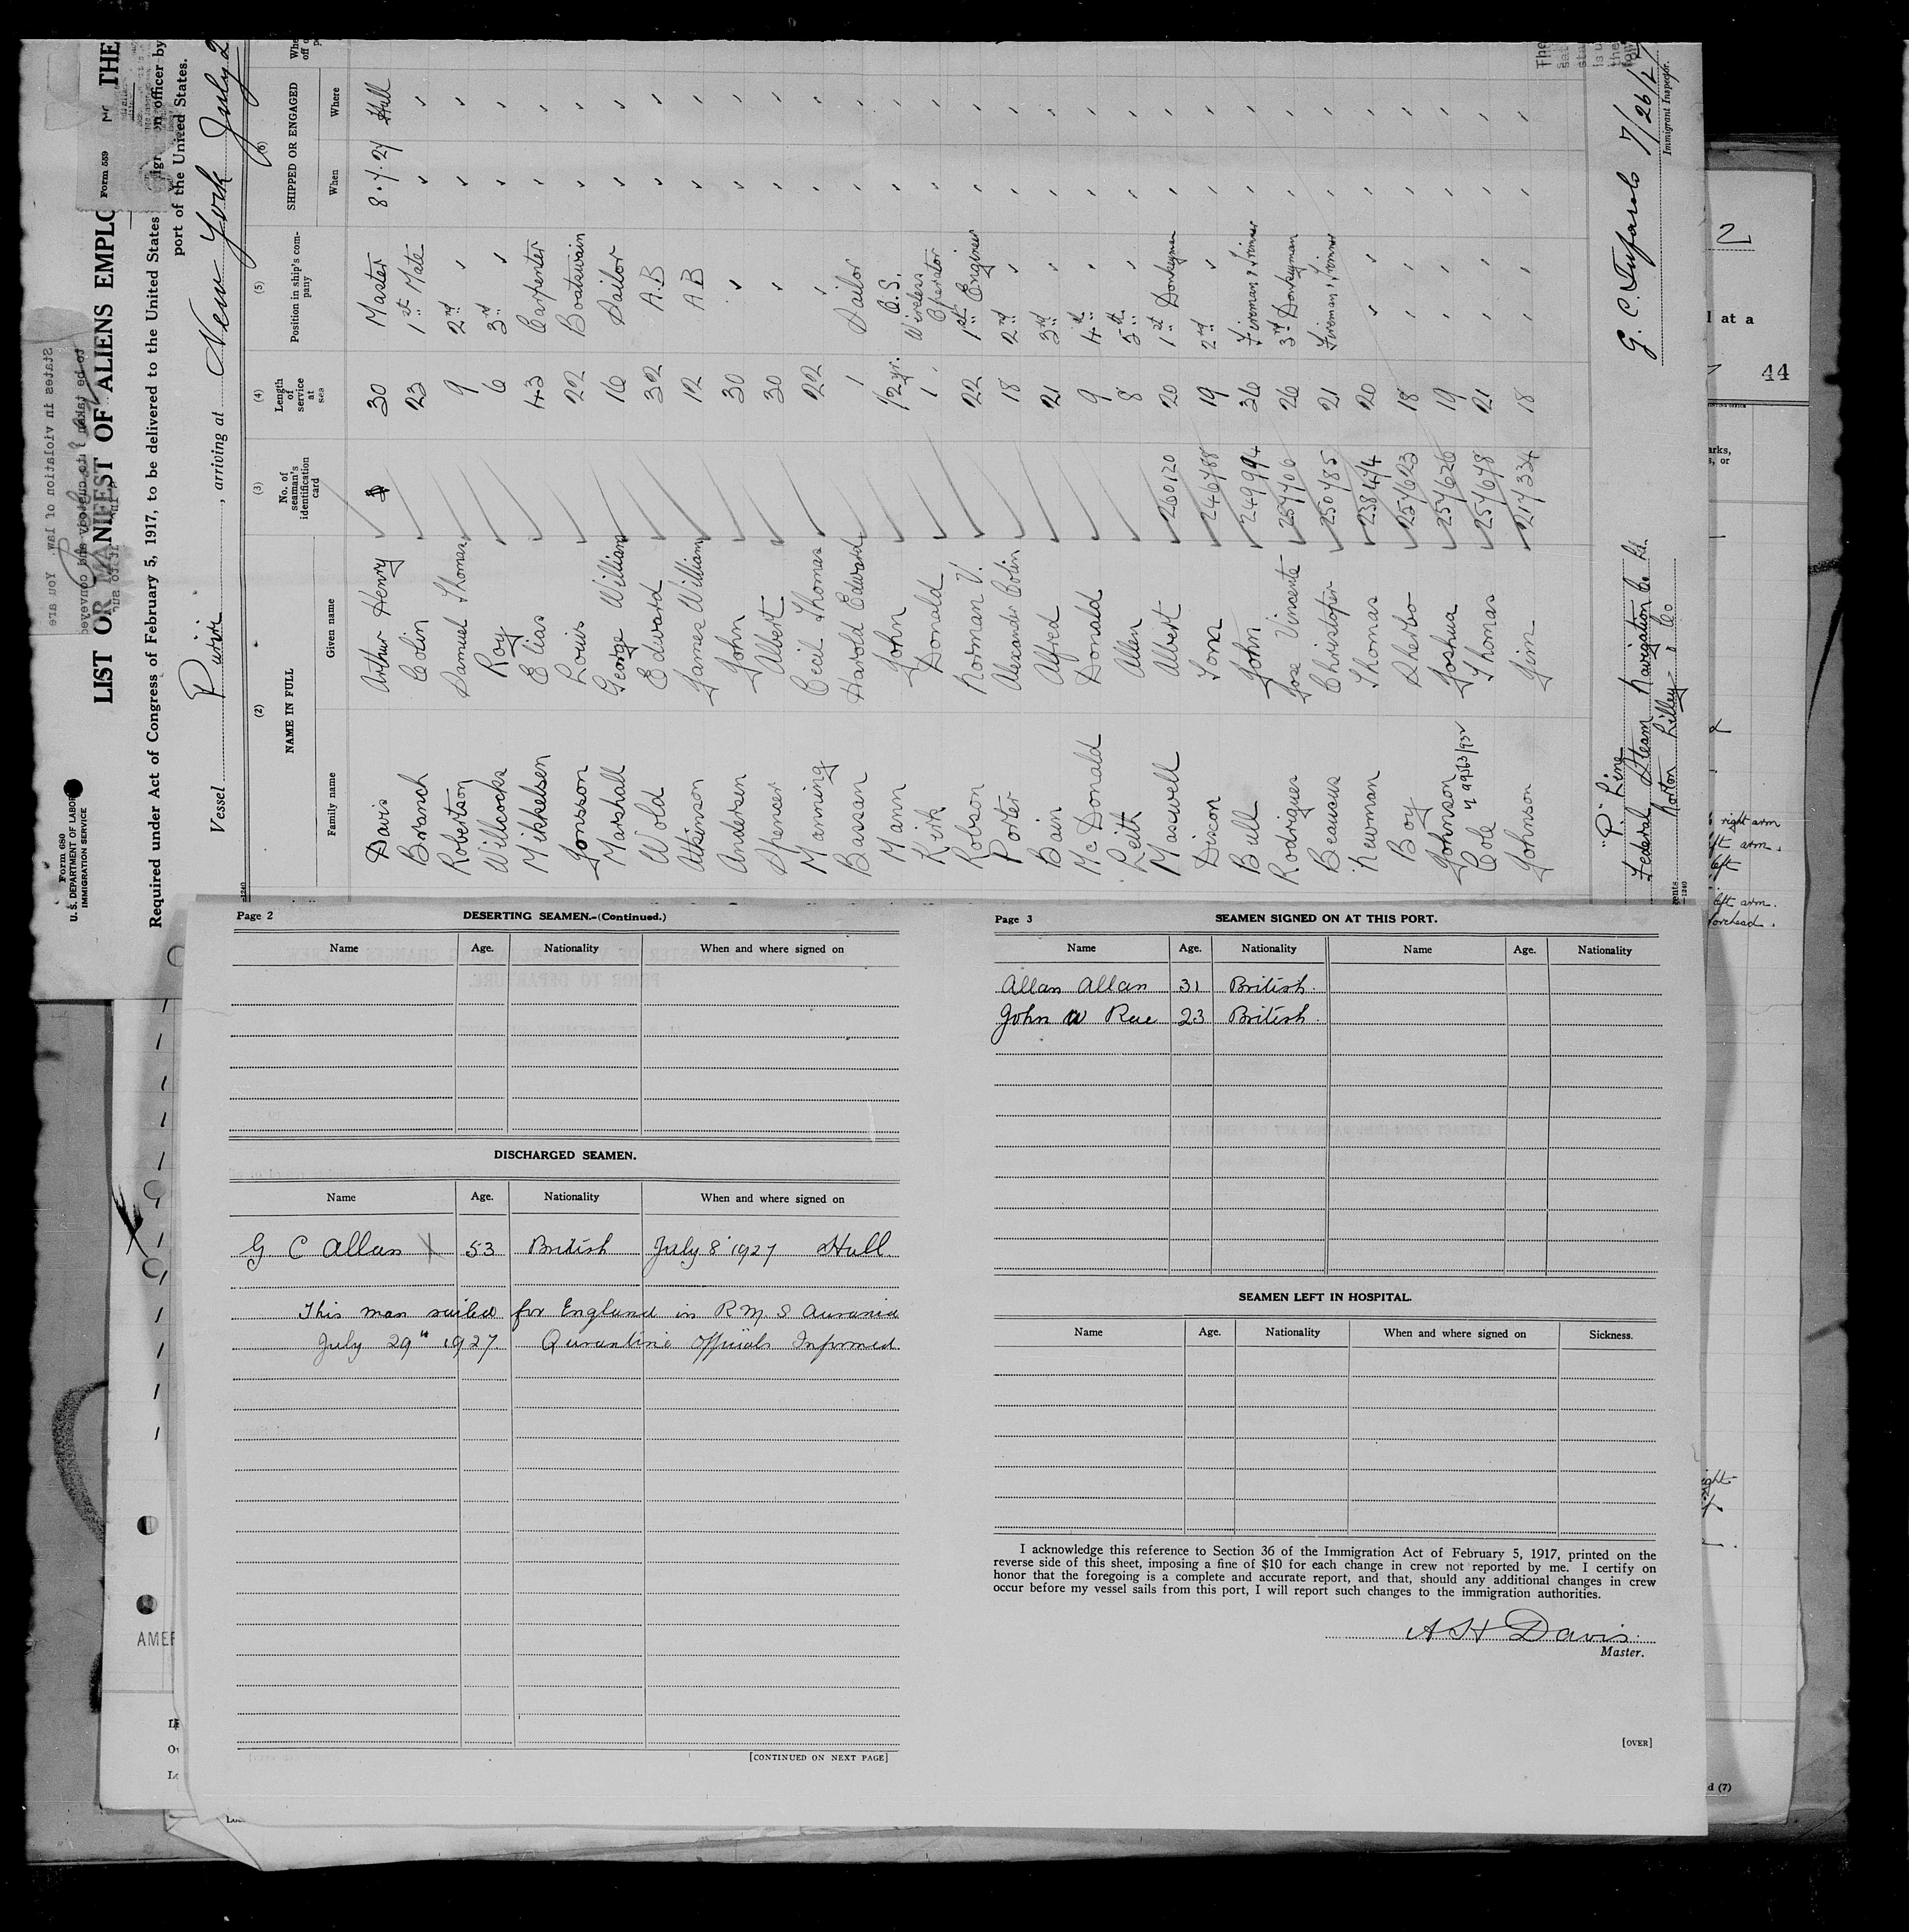 Form 680
U. S. DEPARTMENT OF LABOR
IMMIGRATION SERVICE
Form 689
LIST OR MANIFEST OF ALIENS EMPLO
THE
Required under Act of Congress of February 5, 1917, to be delivered to the United States
officer by
port of the United States.
Vessel Puriri, arriving at New York July 2
(2) (3) (4) (5) (6)
NAME IN FULL
Family name Given name
No. of seaman's identification card
Length of service at sea
Position in ship's company
SHIPPED OR ENGAGED
When Where
Davis Arthur Henry 30 Master 8.7.27 Hull
Branch Colin 23 1st Mate " "
Robertson Daniel Thomas 9 2nd " " "
Willcocks Roy 6 3rd " " "
Mikkelsen Elias 43 Carpenter " "
Jonsson Louis 22 Boatswain " "
Marshall George William 16 Sailor " "
Wold Edward 32 A.B " "
Atkinson James William 12 A.B " "
Andersen John 30 " " "
Spencer Albert 30 " " "
Manning Cecil Thomas 22 " " "
Bassan Harold Edward 1 Sailor " "
Mann John 1/2 yr. O.S. " "
Kirk Donald 1 Wireless Operator " "
Robson Norman V. 22 1st Engineer " "
Porter Alexander Colin 18 2nd " " "
Bain Alfred 21 3rd " " "
McDonald Donald 9 4th " " "
Leith Allen 8 5th " " "
Maxwell Albert 260120 20 1st Donkeyman " "
Dixon Tom 246788 19 2nd " " "
Bull John 249994 36 Fireman & Trimmer " "
Rodriguez Jose Vincente 257706 26 3rd Donkeyman " "
Beausus Christopher 250785 21 Fireman & Trimmer " "
Newman Thomas 238474 20 " " " "
Boy Sherbo 257623 18 " " " "
Johnson Joshua 257626 19 " " " "
Cole Thomas 257678 21 " " " "
Johnson Jim 217334 18 " " " "
"P" Line
Federal Steam Navigation Co Ld.
Norton Lilley & Co
G. C. Tufarolo 7/26/27
Immigrant Inspector.
2
l at a
44
right arm
ft arm.
left
left arm.
forehead.
d (7)
AMER
Page 2
DESERTING SEAMEN.—(Continued.)
Name Age. Nationality When and where signed on
DISCHARGED SEAMEN.
Name Age. Nationality When and where signed on
G. C Allan X 53 British July 8" 1927 Hull.
This man sailed for England in R M S Aurania
July 29" 1927. Quarantine Officials Informed.
[CONTINUED ON NEXT PAGE]
Page 3
SEAMEN SIGNED ON AT THIS PORT.
Name Age. Nationality Name Age. Nationality
Allan Allan 31 British.
John W Rae 23 British.
SEAMEN LEFT IN HOSPITAL.
Name Age. Nationality When and where signed on Sickness.
I acknowledge this reference to Section 36 of the Immigration Act of February 5, 1917, printed on the
reverse side of this sheet, imposing a fine of $10 for each change in crew not reported by me. I certify on
honor that the foregoing is a complete and accurate report, and that, should any additional changes in crew
occur before my vessel sails from this port, I will report such changes to the immigration authorities.
A H Davis.
Master.
[OVER]